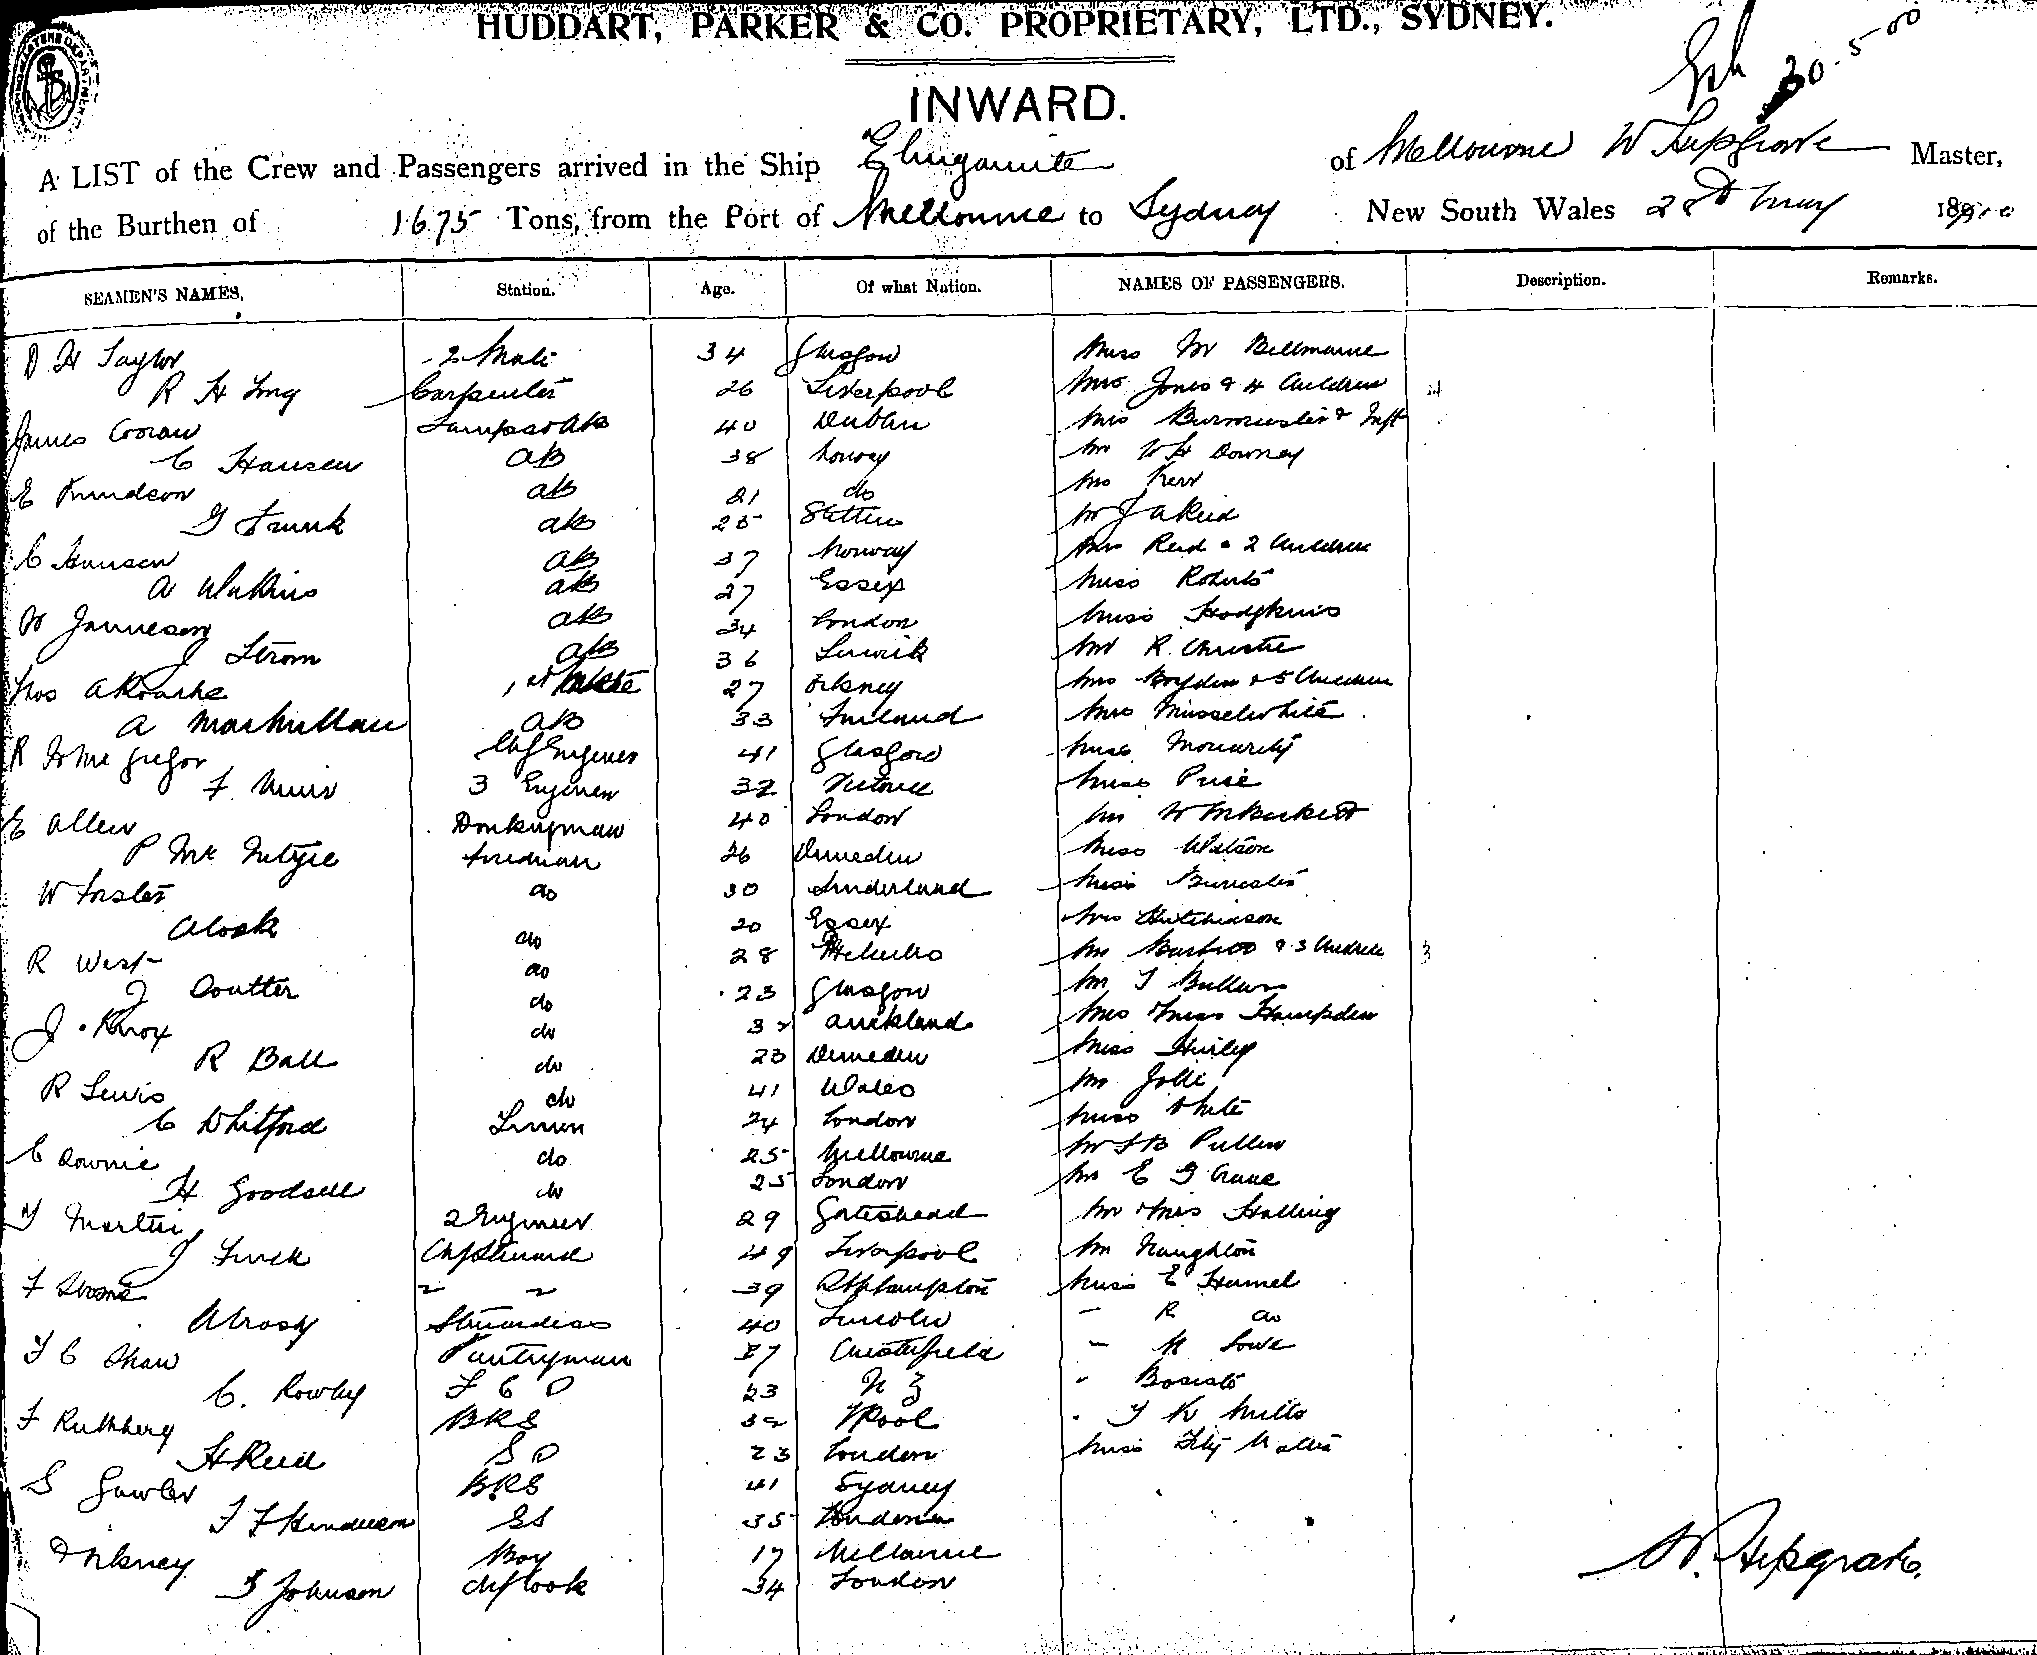 HUDDART, PARKER & CO. PROPRIETARY, LTD., SYDNEY.
30.5.00
INWARD.
A LIST of the Crew and Passengers arrived in the Ship Elingamite of Melbourne W Hepgrave Master,
of the Burthen of 1675 Tons, from the Port of Melbourne to Sydney New South Wales 28th May 1900
SEAMEN'S NAMES, Station. Age. Of what Nation. NAMES OF PASSENGERS. Description. Remarks.
D H Taylor 2 Mate 34 Glasgow Miss M Bellmaine
R H Long Carpenter 26 Liverpool Mrs Jones & 4 Children 4
James Cooran Lamps & AB 40 Dublin Mrs Burmeister & Inft
C Hansen AB 38 Norway Mr W H Downey
E Knudson AB 21 do Mrs Kerr
G Frunk AB 25 Stettin Mr J A Reid
C Hansen AB 37 Norway Mrs Reid & 2 Children
A Watkins AB 27 Essex Miss Roberts
W Jamieson AB 34 London Miss Hodgkins
J Strom AB 36 Lerwick Mr R. Christie
Thos A Rourke 1st Mate 27 Orkney Mrs Boyden & 5 Children
A MacMillan AB 33 Finland Mrs Musselwhite
R W McGregor Chf Engineer 41 Glasgow Miss Moriarty
F. Muir 3 Engineer 32 Victoria Miss Price
E Allen Donkeyman 40 London W McBeckett
P McIntyre Fireman 26 Dunedin Miss Watson
W Forster do 30 Sunderland Miss
A Cook do 20 Essex Mrs Hutchinson
R West do 28 Mrs & 3 Children 3
J Coutter do 23 Glasgow Mr T
J. Knox do 32 Auckland Mrs & Miss Hampden
R Ball do 23 Dunedin Miss Hurley
R Lewis do 41 Wales Mr Jolli
C Whitford Trimmer 24 London Miss White
C Downie do 25 Melbourne Mr Pullen
H Goodsell do 25 London Mr E G Crane
T Martin 2 Engineer 29 Gateshead Mr & Mrs Halling
J Finck Chf Steward 49 Liverpool Mr Naughton
F " " 39 Miss E Hamel
A Crosby Stewardess 40 Lincoln " R do
T C Shaw Pantryman 27 Chesterfield " M Lowe
C. Rowley F C O 23 N Z " Bosisto
F Ruthberg BRS 32 L'Pool " T K Mills
H Reid S O 23 London Miss
S Gawler BRS 41 Sydney
T F Henderson SS 35 London
Pinkney Boy 17 Melbourne
J Johnson Chf Cook 34 London
W. Hepgrave.